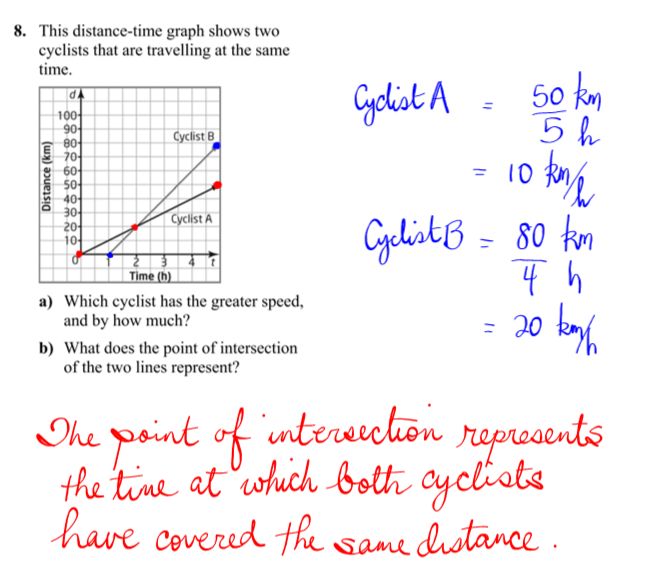 8. This distance-time graph shows two
cyclists that are travelling at the same
time.
d
100
90
80
70
60
50
40
30
20
10
0
2 3 4 t
Distance (km)
Time (h)
Cyclist B
Cyclist A
a) Which cyclist has the greater speed,
and by how much?
b) What does the point of intersection
of the two lines represent?
Cyclist A = 50 km
5 h
= 10 km/h
Cyclist B = 80 km
4 h
= 20 km/h
The point of intersection represents
the time at which both cyclists
have covered the same distance.